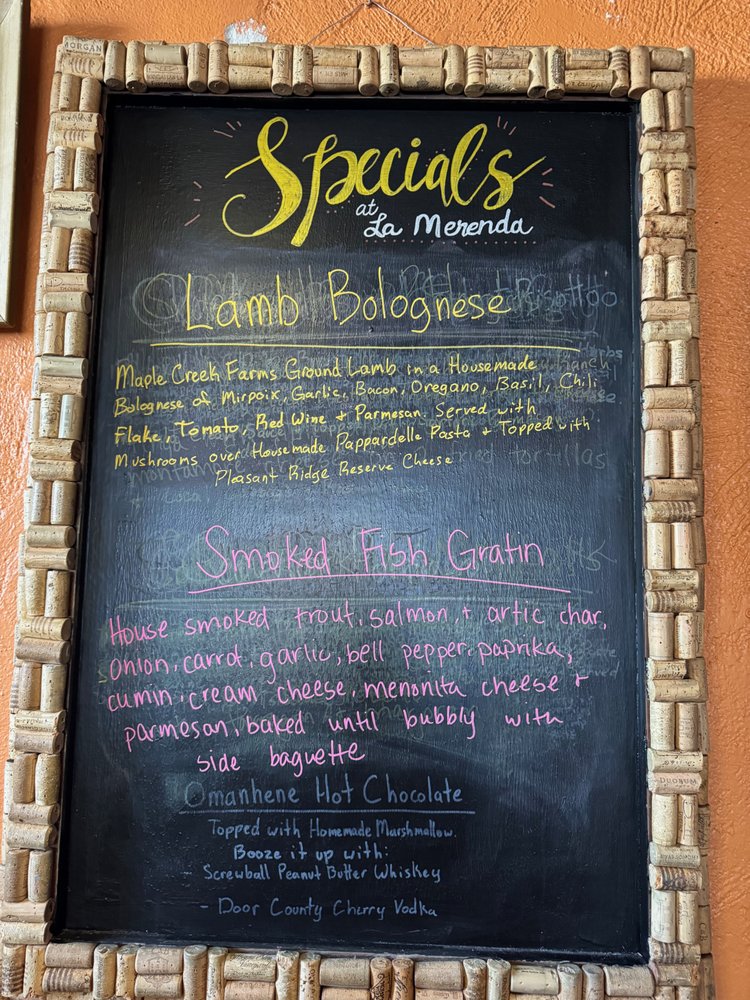 Specials
at
La Merenda
Lamb Bolognese
Risotto
Maple Creek Farms Ground Lamb in a Housemade
Bolognese of Mirpoix, Garlic, Bacon, Oregano, Basil, Chili
Flake, Tomato, Red Wine + Parmesan. Served with
Mushrooms over Housemade Pappardelle Pasta + Topped with
tortillas
Pleasant Ridge Reserve Cheese
Smoked Fish Gratin
House smoked trout, salmon, + artic char,
onion, carrot, garlic, bell pepper, paprika,
cumin, cream cheese, menonita cheese +
parmesan, baked until bubbly with
side baguette
Omanhene Hot Chocolate
Topped with Homemade Marshmallow.
Booze it up with:
- Screwball Peanut Butter Whiskey
- Door County Cherry Vodka
MORGAN
DUORUM